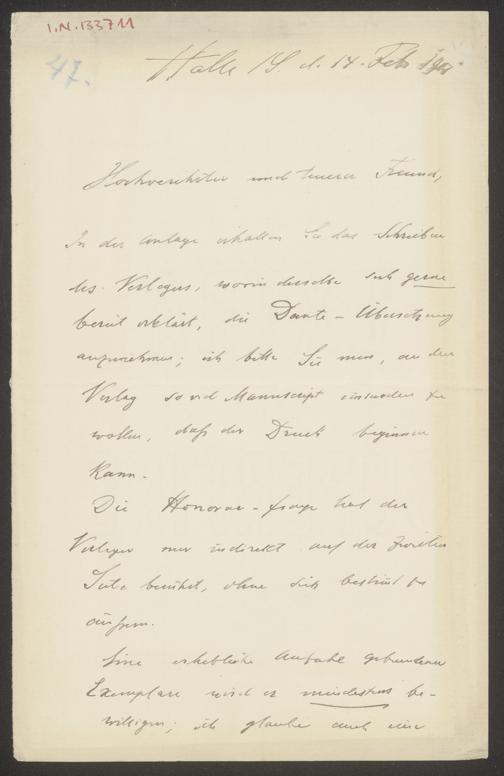 I.N. 133711
47.
Halle /S. d. 14. Feb
Hochverehrter und teurer Freund,
In der Anlage erhalten Sie das Schreiben
des Verlegers, worin derselbe sich gerne
bereit erklärt, die Dante-Übersetzung
anzunehmen; ich bitte Sie nun, an den
Verlag so viel Manuscript einsenden zu
wollen, daß der Druck beginnen
kann.
Die Honorar-frage hat der
Verleger nur indirekt auf der zweiten
Seite berührt, ohne sich bestimt zu
äußern.
Eine erhebliche Anzahl gebundener
Exemplare wird er mindestens be-
willigen; ich glaube auch eine